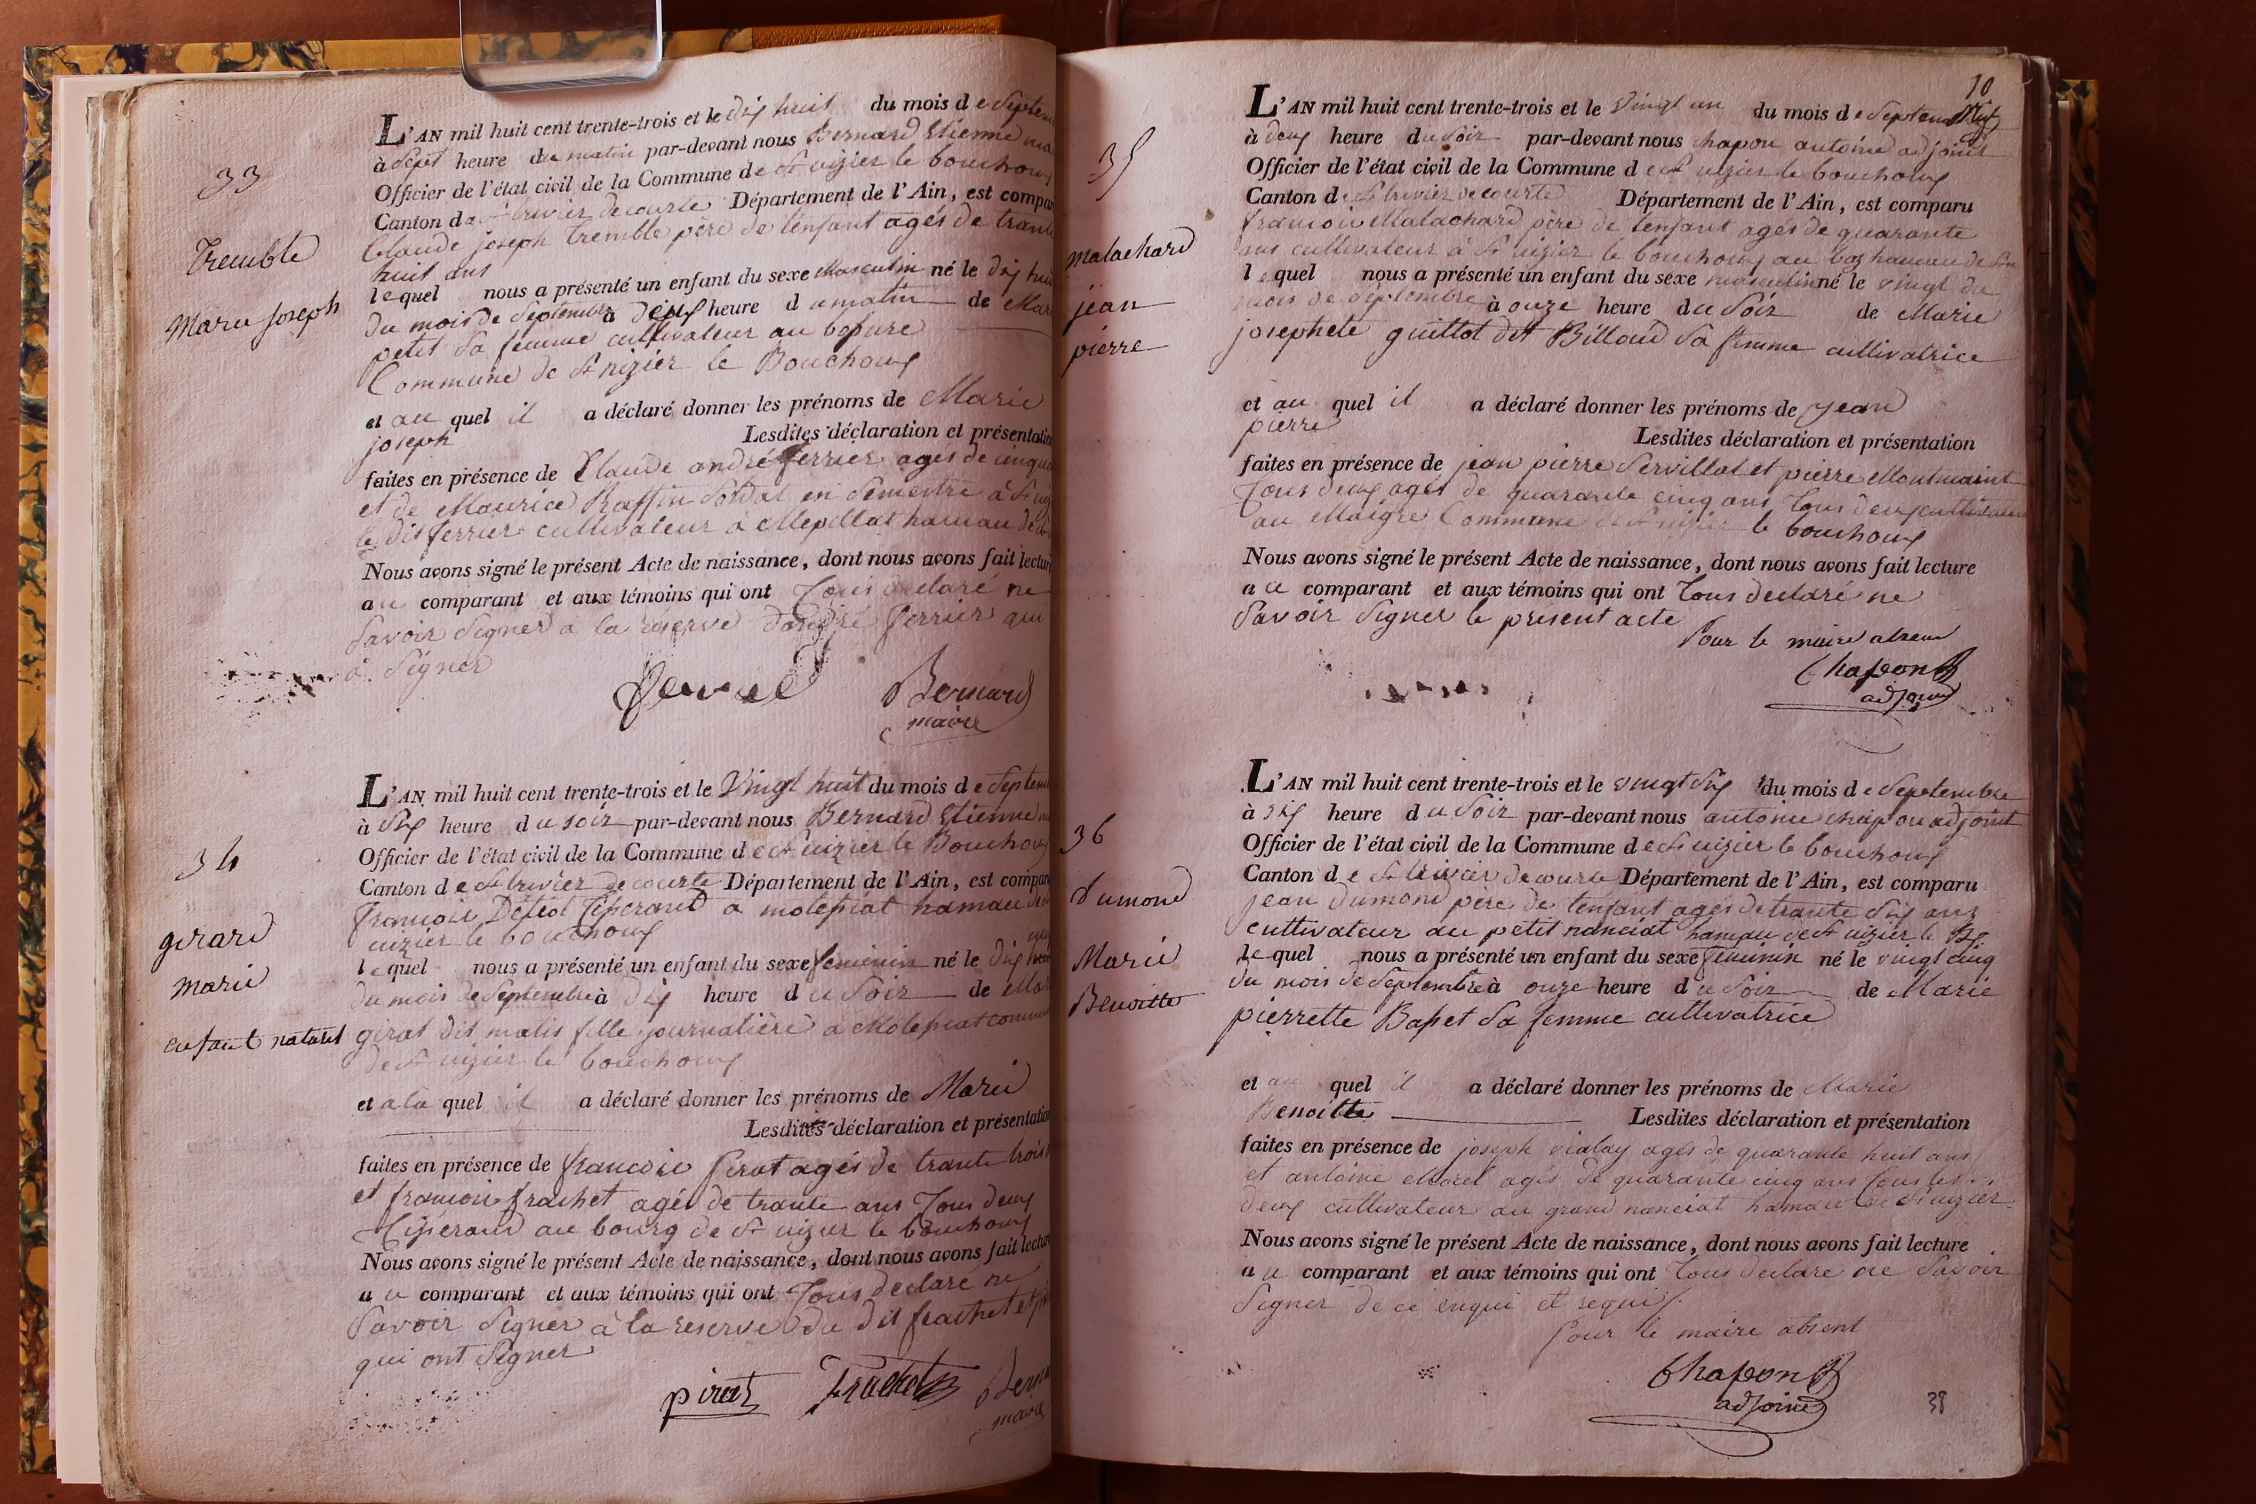 33
Tremble
Marie Joseph
L'AN mil huit cent trente-trois et le dix huit du mois de Septem
à Sept heure du matin par-devant nous Bernard Etienne ma
Officier de l'état civil de la Commune de St nizier le bouchoux
Canton de St trivier de courte Département de l'Ain, est compar
Claude joseph Tremble père de lenfant agés de trante
huit ans
lequel nous a présenté un enfant du sexe Masculin né le dix huit
du mois de Septembre à deux heure du matin de Mar
petit Sa femme cultivateur au
Commune de St nizier le Bouchoux
et au quel il a déclaré donner les prénoms de Marie
joseph Lesdites déclaration et présentation
faites en présence de Claude andré ferrier agés de cinqua
et de Maurice Raffin Soldat en Semestre à St niz
le dit ferrier cultivateur à Mepillat hamau de St
Nous avons signé le présent Acte de naissance, dont nous avons fait lecture
au comparant et aux témoins qui ont Tous declaré ne
Savoir Signer à la reserve d'andré ferrier qui
à Signer
Bernard
maire
34
girard
marie
enfant naturel
L'AN mil huit cent trente-trois et le Vingt huit du mois de Septem
à Six heure du soir par-devant nous Bernard Etienne ma
Officier de l'état civil de la Commune de St nizier le Bouchoux
Canton de St trivier de courte Département de l'Ain, est compar
francois Tisserand a hamau de St
nizier le bouchoux
lequel nous a présenté un enfant du sexe feminin né le dix
du mois de Septembre à dix heure du Soir de Mar
girat dit matis fille journalière a commune
de St nizier le bouchoux
et a la quel il a déclaré donner les prénoms de Marie
Lesdites déclaration et présentation
faites en présence de francois Pirat agés de trante trois
et francois frachet agés de trante ans Tous deux
Tisserand au bourg de St nizier le bouchoux
Nous avons signé le présent Acte de naissance, dont nous avons fait lecture
au comparant et aux témoins qui ont Tous declare ne
Savoir Signer à la reserve du dit frachet et
qui ont Signer
pirat Frachet Bernard
maire
10
35
malachard
jean
pierre
L'AN mil huit cent trente-trois et le Vingt un du mois de Septem
à deux heure du Soir par-devant nous chapon antoine adjoint
Officier de l'état civil de la Commune de St nizier le bouchoux
Canton de St trivier de courte Département de l'Ain, est comparu
francois Malachard père de lenfant agés de quarante
ans cultivateur à St nizier le bouchoux au hamau de St n
lequel nous a présenté un enfant du sexe masculin né le vingt du
mois de Septembre à onze heure du Soir de Marie
josephete guillot dit Billoud Sa femme cultivatrice
et au quel il a déclaré donner les prénoms de Jean
pierre Lesdites déclaration et présentation
faites en présence de jean pierre Servillat et pierre Montmaint
Tous deux agés de quarante cinq ans Tous deux cultivateur
au Maigre Commune de St nizier le bouchoux
Nous avons signé le présent Acte de naissance, dont nous avons fait lecture
au comparant et aux témoins qui ont Tous declaré ne
Savoir Signer le présent acte
Pour le maire absent
Chapon
adjoint
36
dumond
Marie
Benoitte
L'AN mil huit cent trente-trois et le vingt Six du mois de Septembre
à Six heure du Soir par-devant nous antoine chapon adjoint
Officier de l'état civil de la Commune de St nizier le bouchoux
Canton de St trivier de courte Département de l'Ain, est comparu
jean dumond père de lenfant agés de trante Six ans
cultivateur au petit nanciat hamau de St nizier le Bx
Lequel nous a présenté un enfant du sexe feminin né le vingt cinq
du mois de Septembre à onze heure du Soir de Marie
pierrette Basset Sa femme cultivatrice
et au quel il a déclaré donner les prénoms de Marie
Benoitte Lesdites déclaration et présentation
faites en présence de joseph vialay agés de quarante huit ans
et antoine Morel agés de quarante cinq ans tous les
deux cultivateur au grand nanciat hamau de St nizier
Nous avons signé le présent Acte de naissance, dont nous avons fait lecture
au comparant et aux témoins qui ont Tous declare ne Savoir
Signer de ce enqui et requis
Pour le maire absent
Chapon
adjoint
38